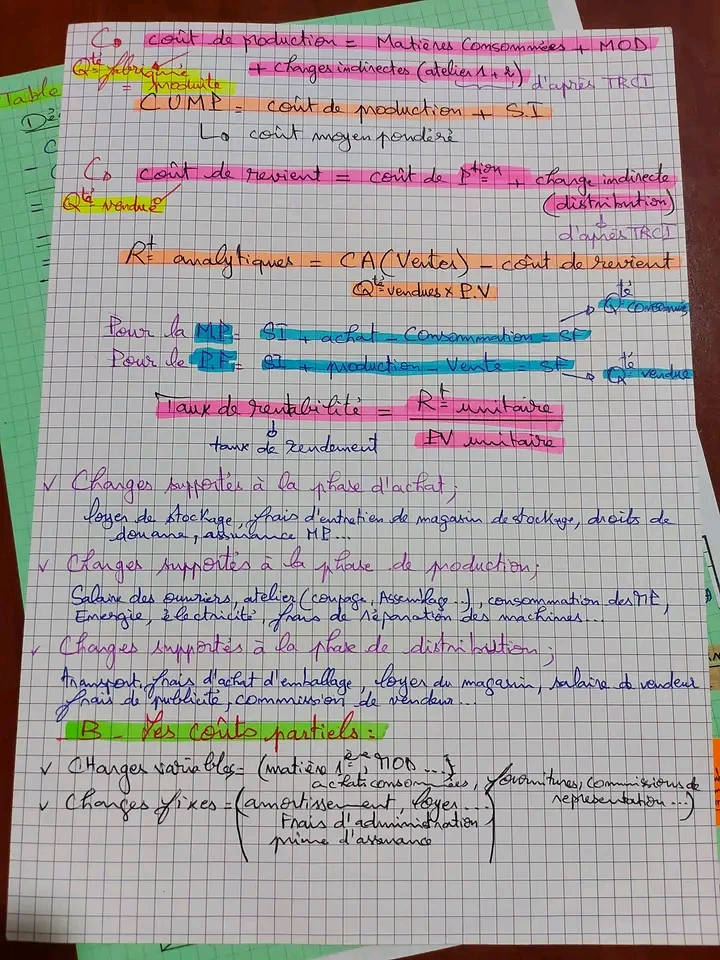 coût de production = Matières Consommées + MOD
Qté fabriquée = produite
+ charges indirectes (atelier 1 + 2) d'après TRCI
CUMP = coût de production + S.I
Lo coût moyen pondéré
coût de revient = coût de Ption + charge indirecte
Qté vendue
(distribution)
d'après TRCI
Rt analytiques = CA (Ventes) - coût de revient
Qté vendues x P.V
Qté consommés
Pour la MP = SI + achat - Consommation = SF
Pour le P.F = SI + production - Vente = SF
Qté vendue
Taux de rentabilité = Rt unitaire
PV unitaire
taux de rendement
✓ Charges supportés à la phase d'achat ;
loyer de stockage, frais d'entretien de magasin de stockage, droits de
douane, assurance MP...
✓ Charges supportés à la phase de production ;
Salaire des ouvriers, atelier (coupage, Assemblage..), consommation des ME,
Energie, électricité, frais de réparation des machines...
✓ Charges supportés à la phase de distribution ;
Transport, frais d'achat d'emballage, loyer du magasin, salaire de vendeur
frais de publicité, commission de vendeur...
B - Les coûts partiels :
✓ CHarges variables = (matière 1ère, MOD ...
achats consommées, fournitures, commissions de
representation...)
✓ Charges fixes = (amortissement, loyer...
Frais d'administration
prime d'assurance
Table